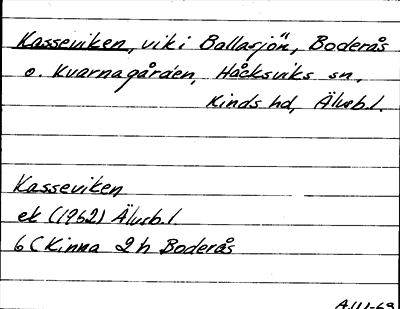 Kasseviken, vik i Ballasjön, Boderås
o. Kvarnagården, Håcksviks sn,
Kinds hd, Älvsb.l.
Kasseviken
ek (1962) Älvsb.l
6C Kinna 2h Boderås